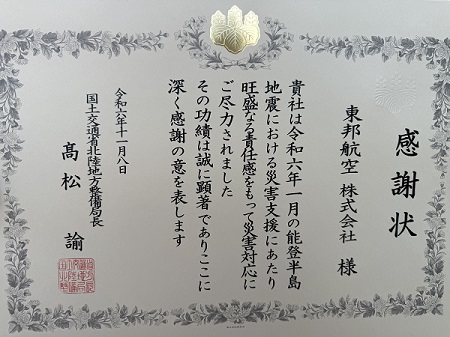 感謝状
東邦航空 株式会社 様
貴社は令和六年一月の能登半島
地震における災害支援にあたり
旺盛なる責任感をもって災害対応に
ご尽力されました
その功績は誠に顕著でありここに
深く感謝の意を表します
令和六年十一月八日
国土交通省北陸地方整備局長
髙松 諭